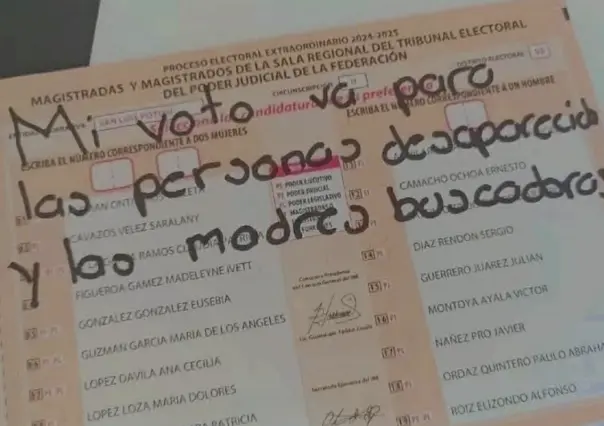 PROCESO ELECTORAL EXTRAORDINARIO 2024-2025
MAGISTRADAS Y MAGISTRADOS DE LA SALA REGIONAL DEL TRIBUNAL ELECTORAL
DEL PODER JUDICIAL DE LA FEDERACIÓN
SAN LUIS POTOSÍ
CIRCUNSCRIPCIÓN
ELECTORAL
ESCRIBA EL NÚMERO CORRESPONDIENTE A DOS MUJERES
ESCRIBA EL NÚMERO CORRESPONDIENTE A UN HOMBRE
Mi voto va para
las personas desaparecid
y las madres buscadoras
PODER EJECUTIVO
PODER JUDICIAL
PODER LEGISLATIVO
CAVAZOS VELEZ SARALANY
RAMOS
FIGUEROA GAMEZ MADELEYNE IVETT
GONZALEZ GONZALEZ EUSEBIA
GUZMAN GARCIA MARIA DE LOS ANGELES
LOPEZ DAVILA ANA CECILIA
LOPEZ LOZA MARIA DOLORES
PATRICIA
CAMACHO OCHOA ERNESTO
DIAZ RENDON SERGIO
GUERRERO JUAREZ JULIAN
MONTOYA AYALA VICTOR
NAÑEZ PRO JAVIER
ORDAZ QUINTERO PAULO ABRAHA
ROIZ ELIZONDO ALFONSO